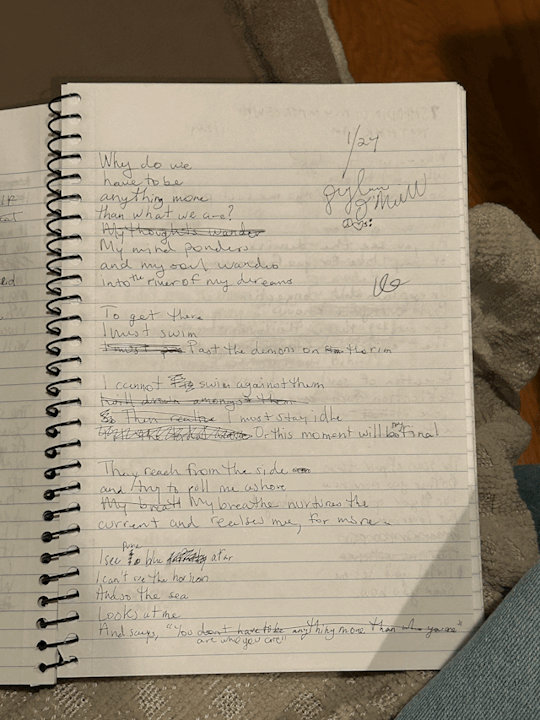 1/24
Why do we
have to be
anything more
than what we are?
My thoughts wander
My mind ponders
and my soul wanders
Into the river of my dreams
To get there
I must swim
I must Past the demons on the rim
I cannot swim against them
Then realize I must stay idle
Or this moment will be my final
They reach from the side
and try to pull me ashore
My breath My breathe nurtures the
current and
me, for miles
I see pure blue afar
I can't see the horizon
And so the sea
Looks at me
And says, "You don't have to be anything more than who you are"
are who you are"